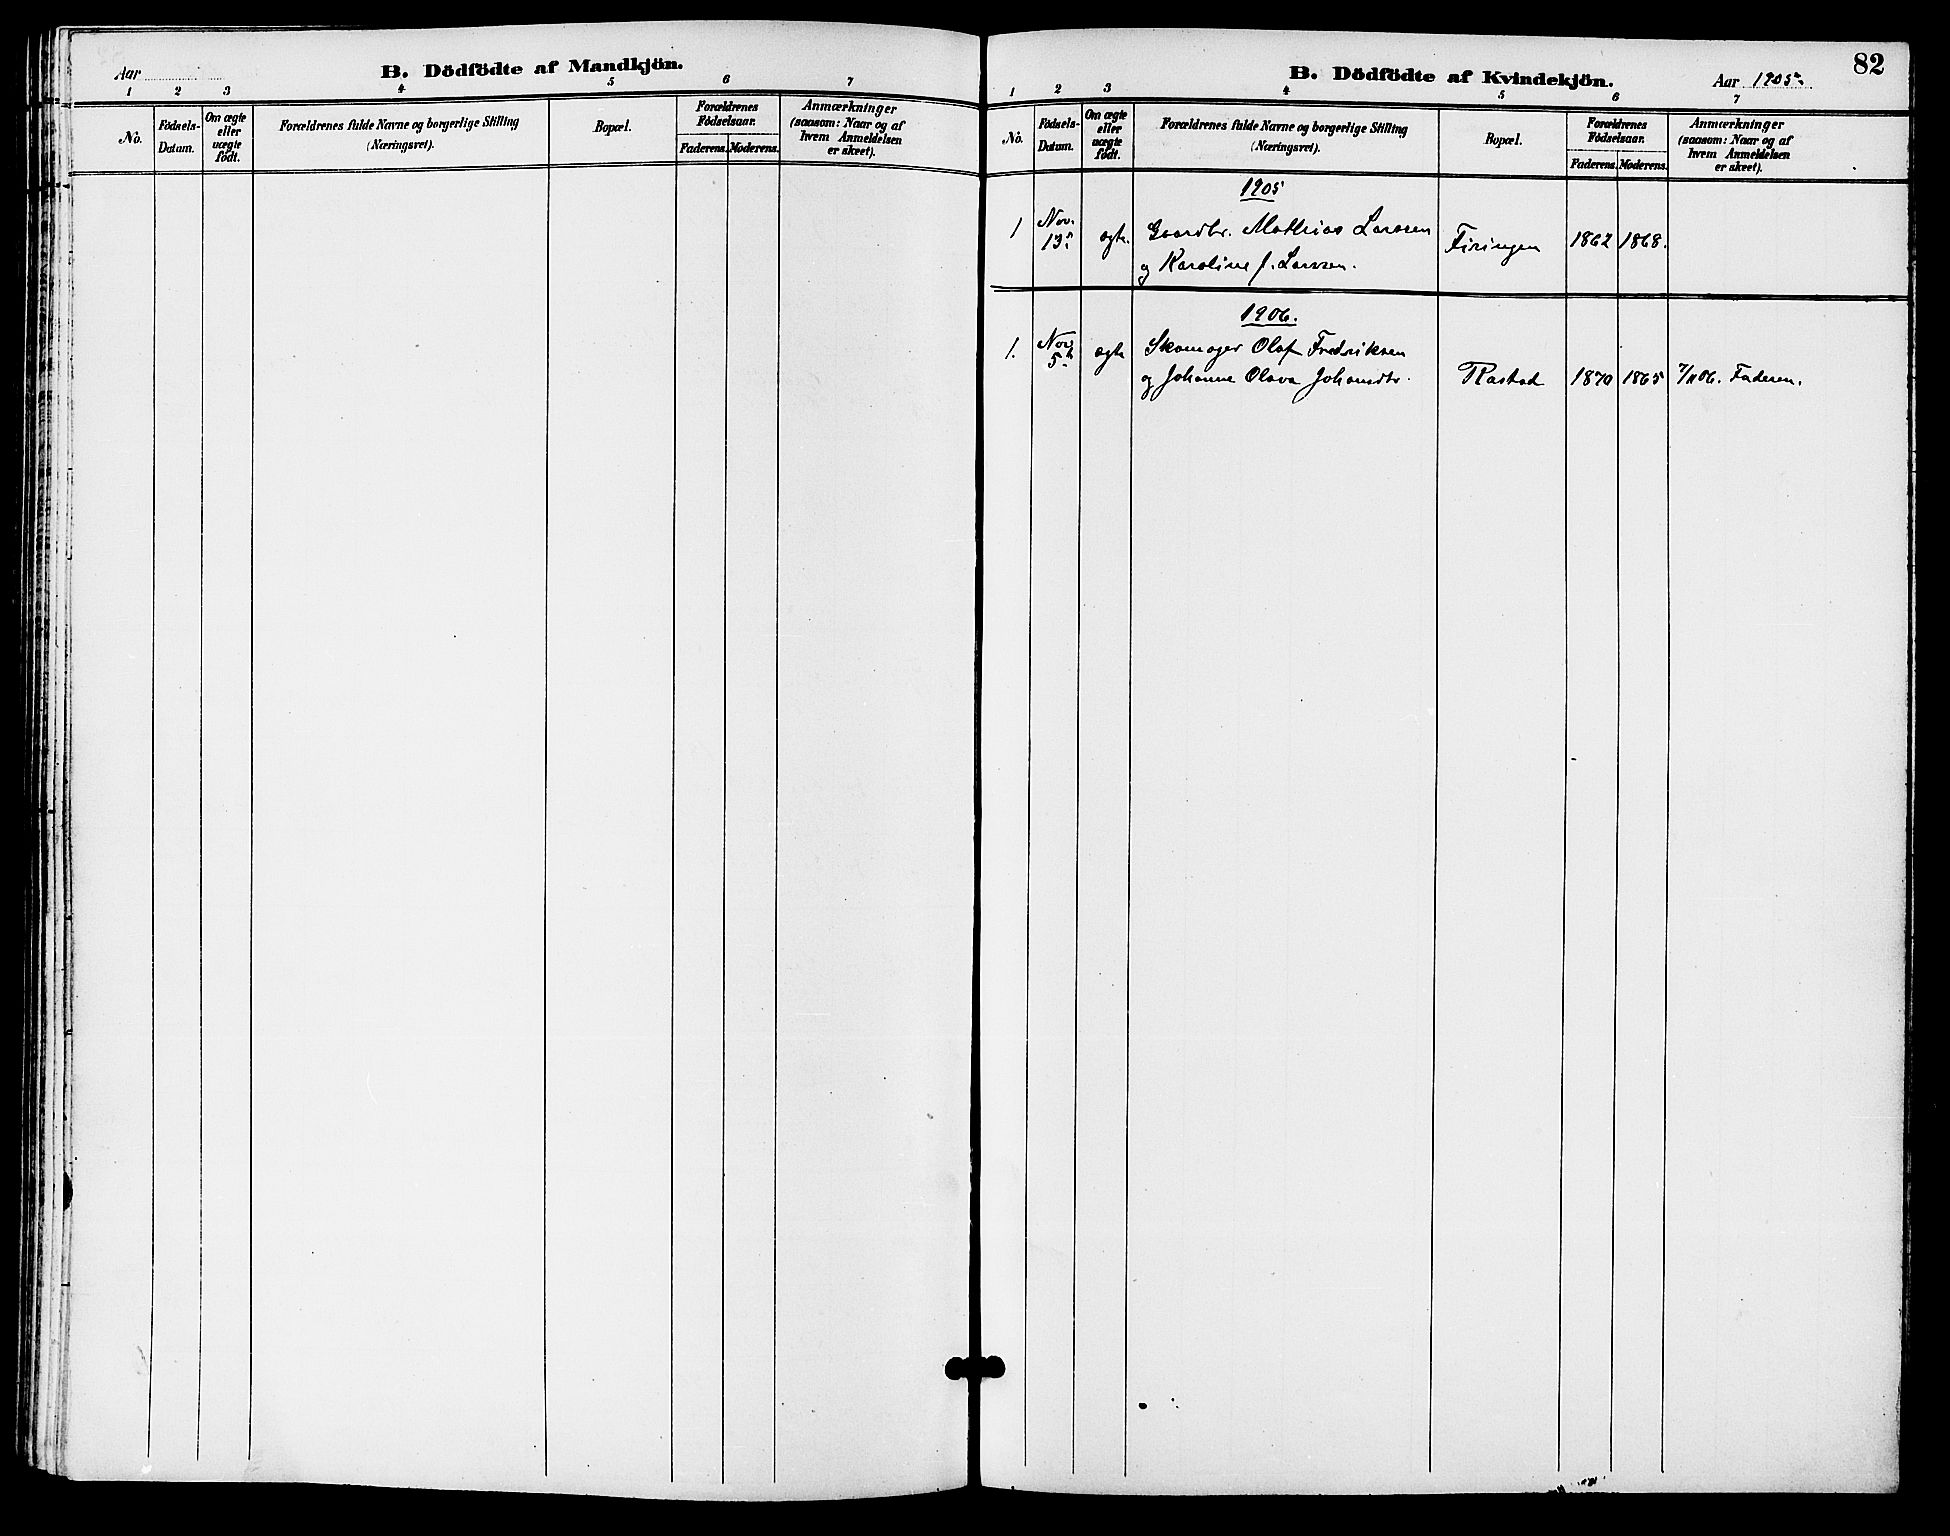 Aar
B. Dödfödte af Mandkjön.
1 2 3 4 5 6 7
No.
Födsels-
Datum.
Om ægte
eller
uægte
födt.
Forældrenes fulde Navne og borgerlige Stilling
(Næringsvei).
Bopæl.
Forældrenes
Födselsaar.
Faderens. Moderens.
Anmærkninger
(saasom: Naar og af
hvem Anmeldelsen
er skeet).
82
B. Dödfödte af Kvindekjön.
Aar 1905
1 2 3 4 5 6 7
No.
Födsels-
Datum.
Om ægte
eller
uægte
födt.
Forældrenes fulde Navne og borgerlige Stilling
(Næringsvei).
Bopæl.
Forældrenes
Födselsaar.
Faderens. Moderens.
Anmærkninger
(saasom: Naar og af
hvem Anmeldelsen
er skeet).
1905
1 Nov. 13. ægte. Gaardbr. Mathias Larssen
og Karoline f. Larssen. Firingen 1862 1868.
1906.
1. Nov 5 ægte Skomager Olaf Fredriksen
og Johanne Olava Johansdtr. Rastad 1870 1865 7/1106. Faderen.